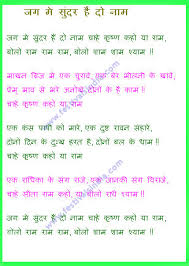 जग मे सुंदर है दो नाम
जग मे सुंदर है दो नाम चाहे कृष्ण कहो या राम,
बोलो राम राम राम, बोलो शाम शाम शाम !!
माखन ब्रिज मे एक चुरावे, एक बेर भीलनी के खावे,
प्रेम भाव से भरे अनोखे दोनों के है काम !!
चाहे कृष्ण कहो या राम,
एक कंस पापी को मारे, एक दुष्ट रावन संहारे,
दोनों दिन के दुःख हरत है, दोनों बल के धाम !!
चाहे कृष्ण कहो या राम,
एक राधिका के संग राजे, एक जानकी संग बिराजे,
चाहे सीता राम कहो या, बोलो राधे श्याम !!
जग मे सुंदर है दो नाम, चाहे कृष्ण कहो या राम,
बोलो राम राम राम, बोलो शाम शाम शाम !!